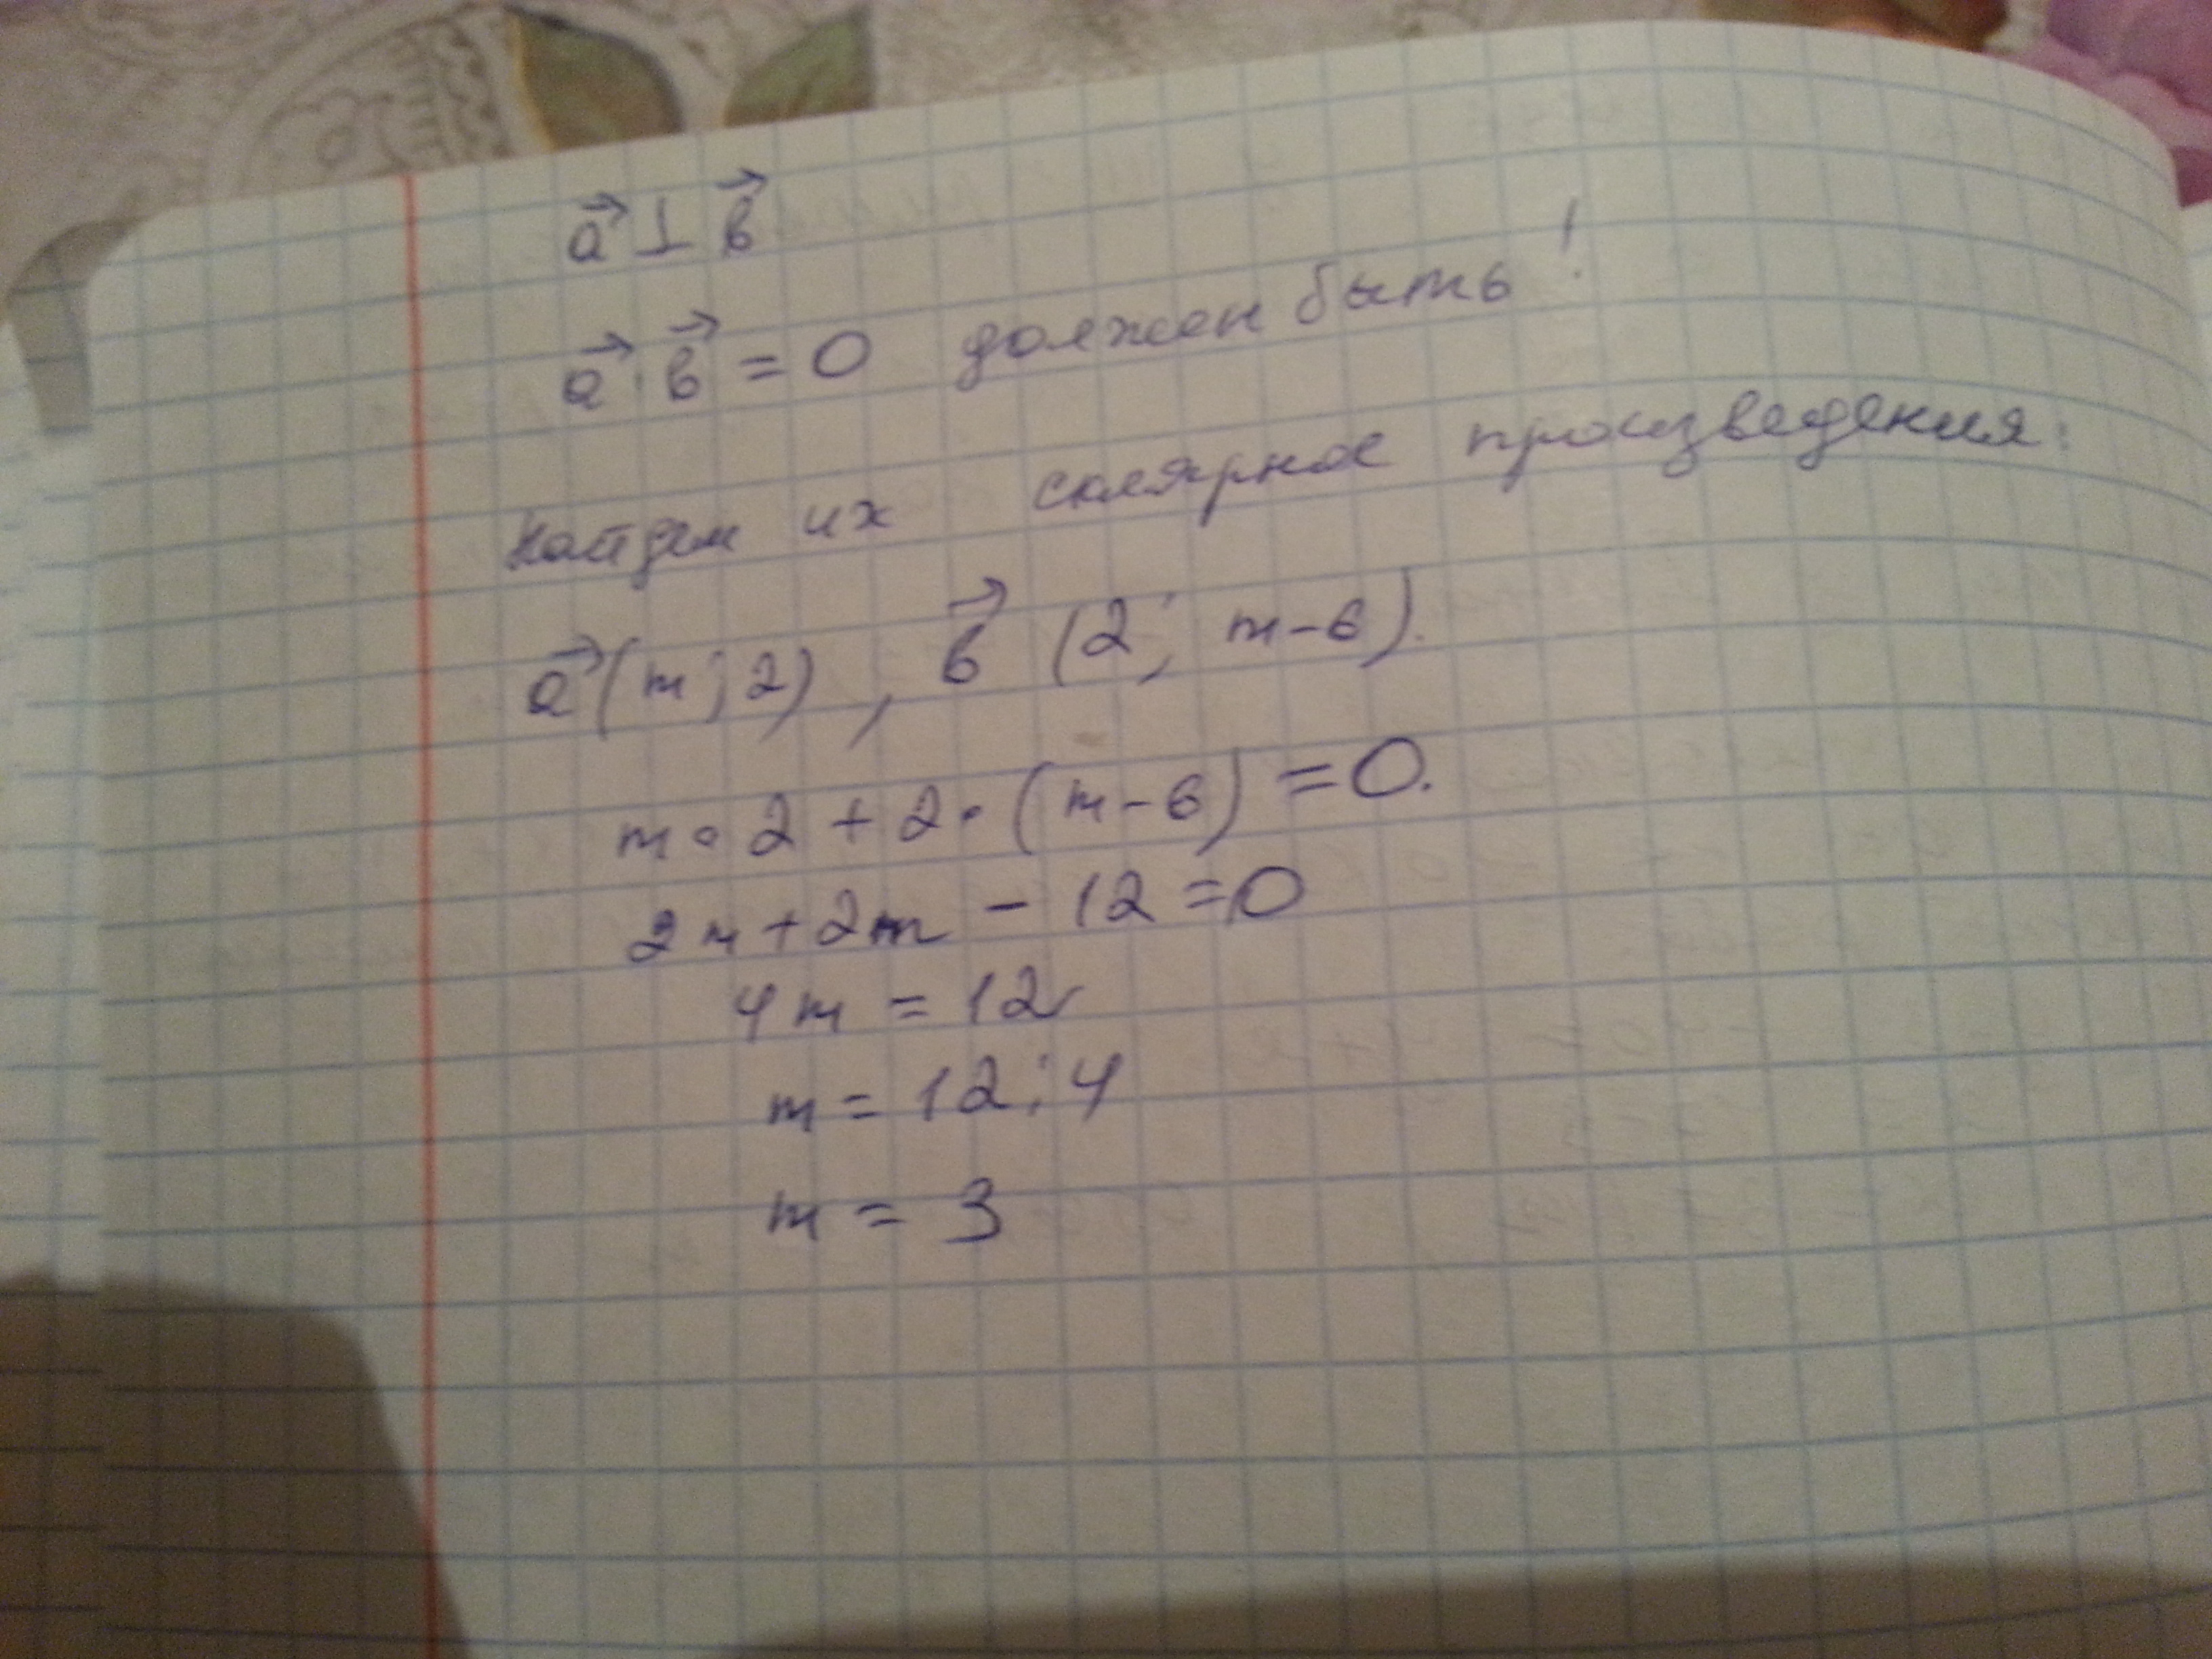 a⃗ ⊥ b⃗
a⃗ · b⃗ = 0 должен быть!
Найдем их скалярное произведения:
a⃗ (m; 2), b⃗ (2; m-6).
m · 2 + 2 · (m - 6) = 0.
2m + 2m - 12 = 0
4m = 12
m = 12 : 4
m = 3